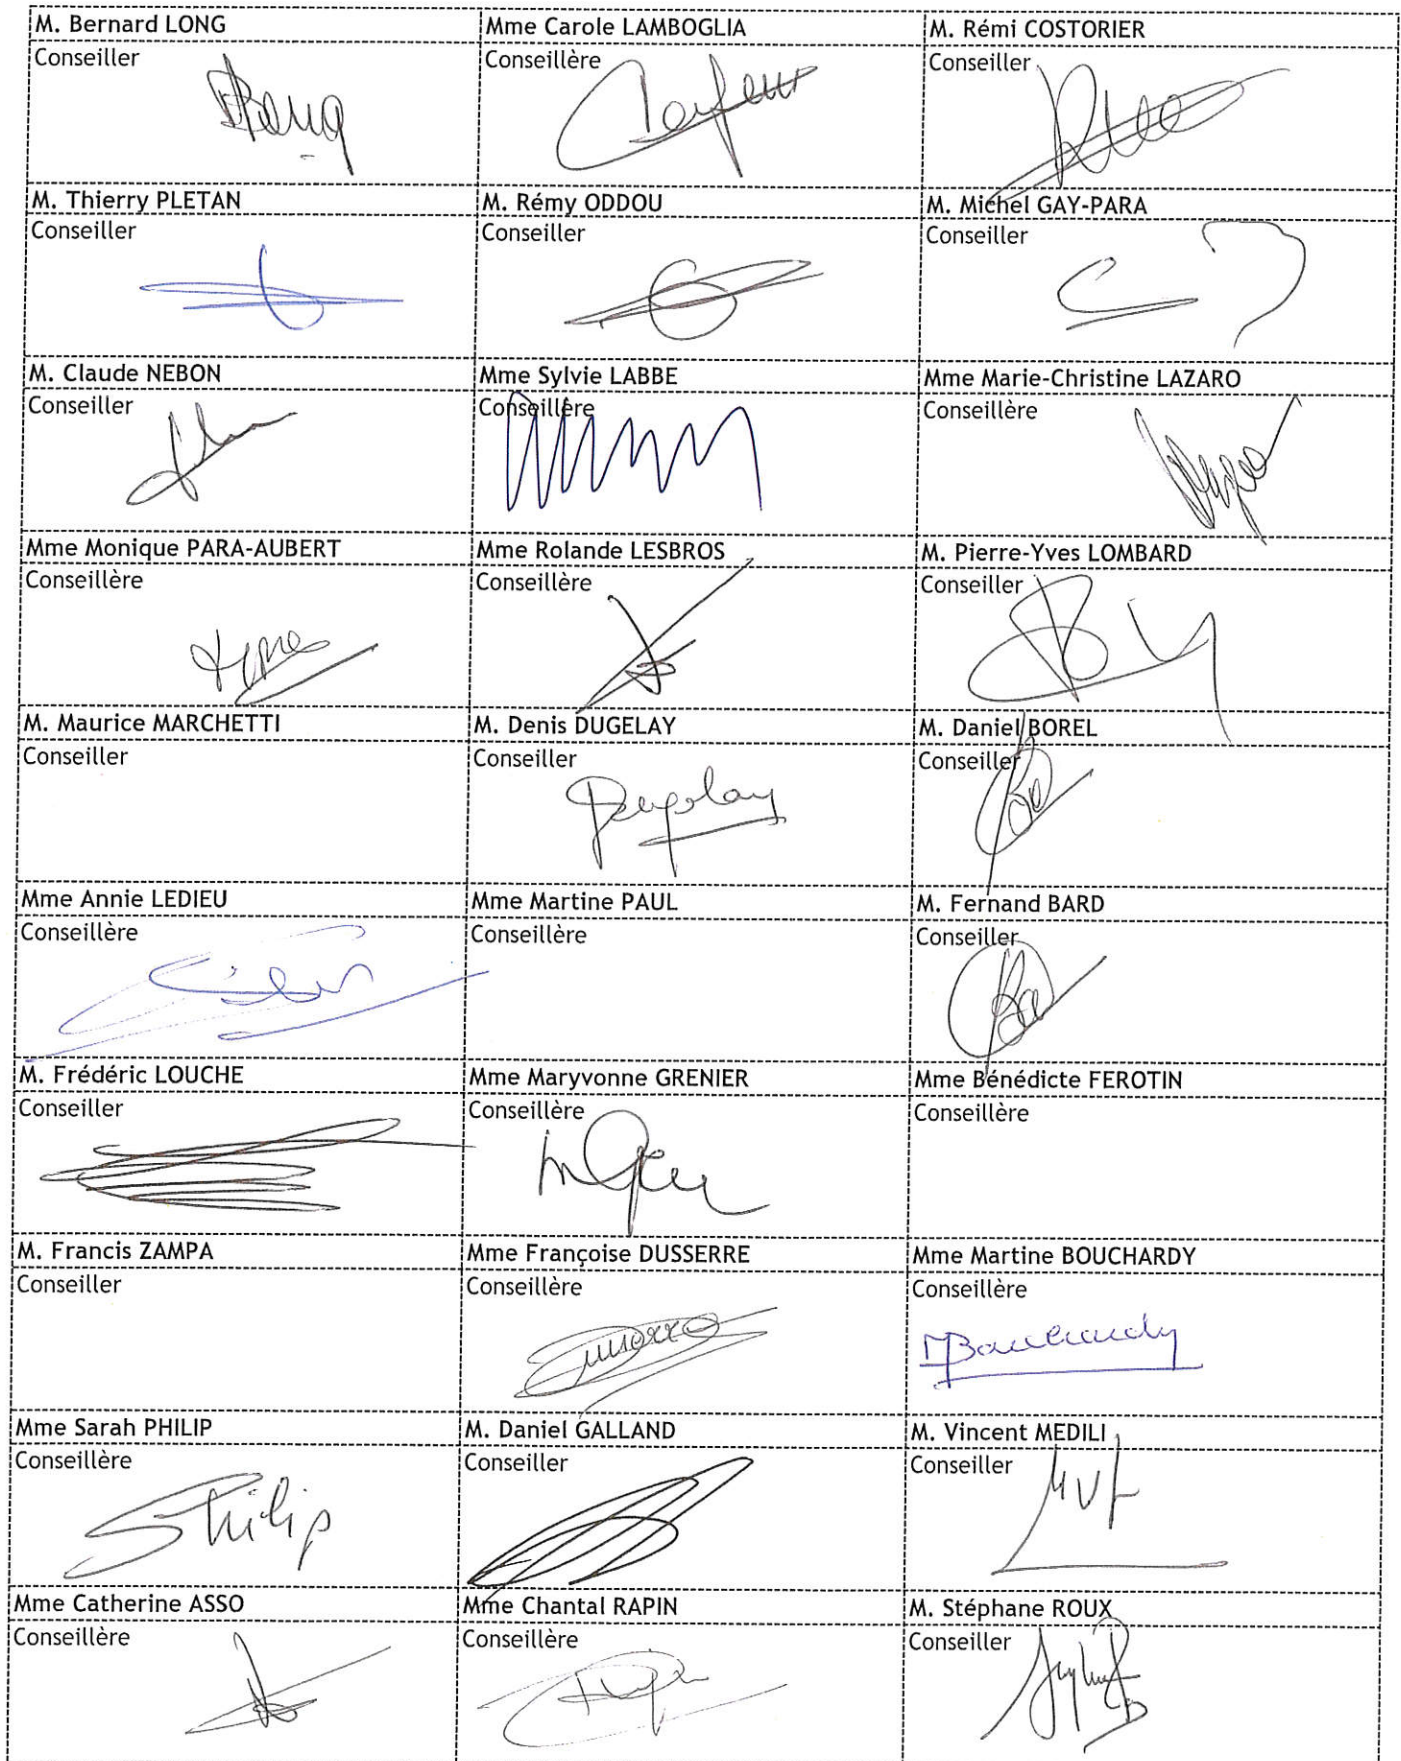 M. Bernard LONG
Mme Carole LAMBOGLIA
M. Rémi COSTORIER
Conseiller
Conseillère
Conseiller
M. Thierry PLETAN
M. Rémy ODDOU
M. Michel GAY-PARA
Conseiller
Conseiller
Conseiller
M. Claude NEBON
Mme Sylvie LABBE
Mme Marie-Christine LAZARO
Conseiller
Conseillère
Conseillère
Mme Monique PARA-AUBERT
Mme Rolande LESBROS
M. Pierre-Yves LOMBARD
Conseillère
Conseillère
Conseiller
M. Maurice MARCHETTI
M. Denis DUGELAY
M. Daniel BOREL
Conseiller
Conseiller
Conseiller
Dugelay
Mme Annie LEDIEU
Mme Martine PAUL
M. Fernand BARD
Conseillère
Conseillère
Conseiller
M. Frédéric LOUCHE
Mme Maryvonne GRENIER
Mme Bénédicte FEROTIN
Conseiller
Conseillère
Conseillère
M. Francis ZAMPA
Mme Françoise DUSSERRE
Mme Martine BOUCHARDY
Conseiller
Conseillère
Conseillère
MBouchardy
Mme Sarah PHILIP
M. Daniel GALLAND
M. Vincent MEDILI
Conseillère
Conseiller
Conseiller
SPhilip
Mme Catherine ASSO
Mme Chantal RAPIN
M. Stéphane ROUX
Conseillère
Conseillère
Conseiller